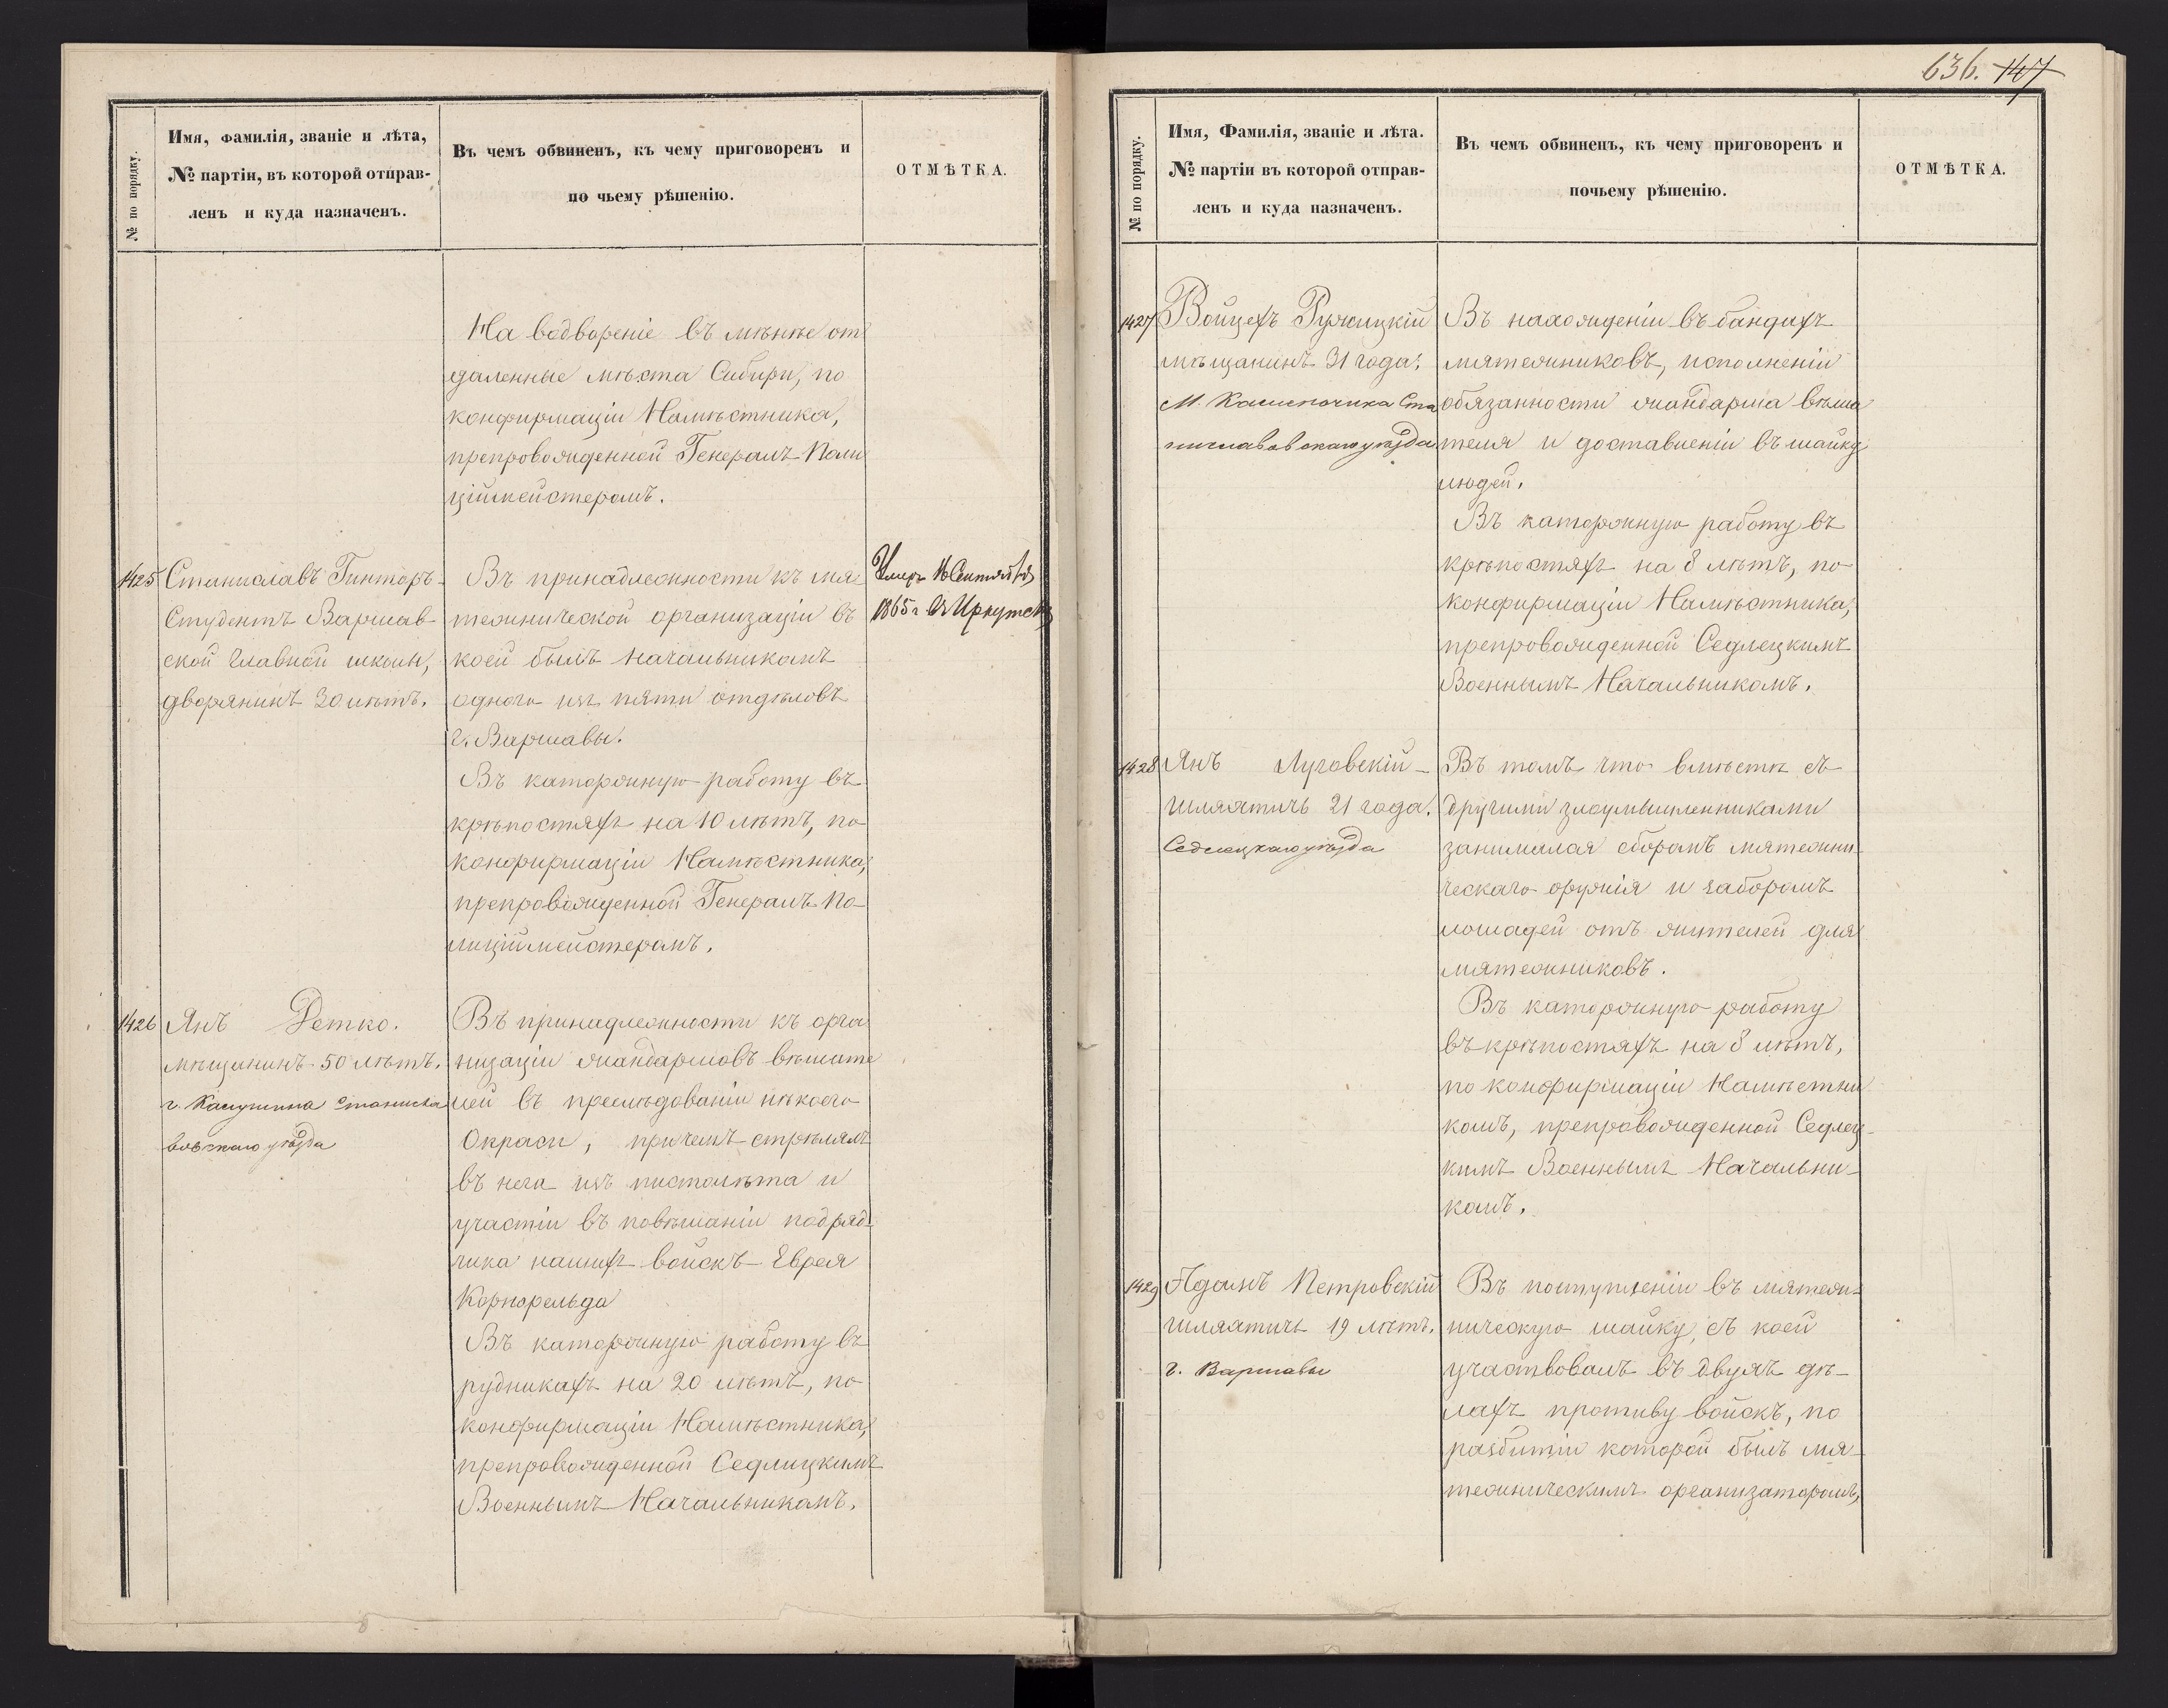 № по порядку.
Имя, фамилія, званіе и лѣта,
№ партіи, въ которой отправ-
ленъ и куда назначенъ.
Въ чемъ обвиненъ, къ чему приговоренъ и
по чьему рѣшенію.
ОТМѢТКА.
На водвореніе въ менѣе от
даленные мѣста Сибири, по
конфирмаціи Намѣстника,
препровожденной Генералъ Поли
ційместеромъ.
1425
Станиславъ Гинторъ-
Студентъ Варшав-
ской Главной школы,
дворянинъ 30 лѣтъ.
Въ принадлежности къ мя
тежнической организаціи въ
коей былъ начальникомъ
одного изъ пяти отдѣловъ
г. Варшавы.
Въ каторжную работу въ
крѣпостяхъ на 10 лѣтъ, по
конфирмаціи Намѣстника,
препровожденной Генералъ По-
лицій­мейстеромъ.
Умеръ 16 Сентября
1865 г. въ Иркутскѣ
1426
Янъ Ретко.
мѣщанинъ 50 лѣтъ.
г. Калушина Станисла
вовскаго уѣзда
Въ принадлежности къ орга
низаціи жандармовъ вѣшате
лей въ преслѣдованіи нѣкоего
Окраси, причемъ стрѣлялъ
въ него изъ пистолѣта и
участіи въ повѣшаніи подряд-
чика нашихъ войскъ Еврея
Корнфельда
Въ каторжную работу въ
рудникахъ на 20 лѣтъ, по
конфирмаціи Намѣстника,
препровожденной Седлицкимъ
Военнымъ Начальникомъ.
636. 147
№ по порядку.
Имя, Фамилія, званіе и лѣта.
№ партіи въ которой отправ-
ленъ и куда назначенъ.
Въ чемъ обвиненъ, къ чему приговоренъ и
почьему рѣшенію.
ОТМѢТКА.
1427
Войцехъ Ружицкій
мѣщанинъ 31 года.
М. Ста
ниславовскаго уѣзда
Въ нахожденіи въ бандахъ
мятежниковъ, исполненіи
обязанности жандарма вѣша
теля и доставленіи въ шайку
людей.
Въ каторжную работу въ
крѣпостяхъ на 8 лѣтъ, по
конфирмаціи Намѣстника,
препровожденной Седлецкимъ
Военнымъ Начальникомъ.
1428
Янъ Луговскій-
шляхтичъ 21 года.
Седлецкаго уѣзда
Въ томъ что вмѣстѣ съ
другими злоумышленниками
занимался сборомъ мятежни
ческаго оружія и заборомъ
лошадей отъ жителей для
мятежниковъ.
Въ каторжную работу
въ крѣпостяхъ на 8 лѣтъ,
по конфирмаціи Намѣстни
комъ, препровожденной Седлец-
кимъ Военнымъ Начальни-
комъ.
1429
Адамъ Петровскій
шляхтичъ 19 лѣтъ.
г. Варшавы
Въ поступленіи въ мятеж-
ническую шайку, съ коей
участвовалъ въ двухъ дѣ-
лахъ противу войскъ, по
разбитіи которой былъ мя-
тежническимъ организаторомъ,